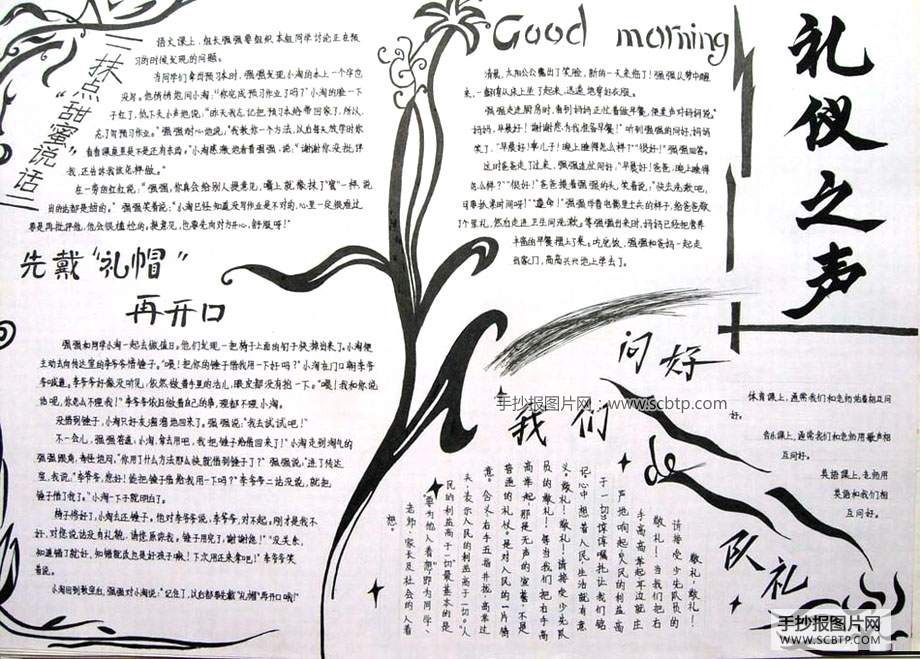 礼仪之声
一抹点“甜蜜”说话二
语文课上，组长强强要组织本组同学讨论正在预
习的时候发现的问题。
当同学们拿出预习本时，强强发现小淘的本上一个字也
没写。他悄悄地问小淘：“你完成预习作业了吗？”小淘的脸一下
子红了，低下头小声地说：“昨天我忘记把预习本给带回家了，所以，
忘了写预习作业。”强强耐心地说：“我教你一个方法，以后每天放学时你
看看课桌里是不是还有东西。”小淘感激地看着强强，说：“谢谢你没批评
我，还告诉我该怎样做。”
在一旁的红红说：“强强，你真会给别人提意见，嘴上就像抹了‘蜜’一样，说
出的话都是甜的。”强强笑着说：“小淘已经知道没写作业是不对的，心里一定很难过，
要是再批评他，他会很尴尬的。提意见，也要先向对方开心，舒服呀！”
先戴“礼帽”
再开口
强强和同学小淘一起去做值日。他们发现一把椅子上面的钉子快掉出来了。小淘便
主动去向传达室的李爷爷借锤子。“喂！把你的锤子借我用一下好吗？”小淘在门口朝李爷
爷喊道。李爷爷好像没听见，依然做着手里的活儿，眼皮都没有抬一下。“喂！我和你说
话呢，你怎么不理我！”李爷爷依旧做着自己的事，理都不理小淘。
没借到锤子，小淘只好灰溜溜地回来了。强强说：“我去试试吧！”
不一会儿，强强喜道：小淘，拿去用吧，我把锤子给借回来了！”小淘走到淘气的
强强跟着，奇怪地问：“你用了什么方法那么快就借到锤子了？”强强说：“进了传达
室，我说：‘李爷爷，您好！能把锤子借给我用一下吗？’李爷爷二话没说，就把
锤子借了我了。”小淘一下子就明白了。
椅子修好了，小淘去还锤子。他对李爷爷说：李爷爷，对不起。刚才是我不
好，对您说话没有礼貌，请您原谅我。锤子用完了，谢谢您！”“没关系，
知道错了就好，知错就改也是好孩子哦！下次用还来拿吧！”李爷爷笑
着说。
小淘回到教室后，强强对小淘说：“记住了，以后都要先戴‘礼帽’再开口哦！”
Good morning
清晨，太阳公公露出了笑脸，新的一天来临了！强强从梦中醒
来，一翻身从床上坐了起来，迅速地穿好衣服。
强强走进厨房时，看到妈妈正忙着做早餐，便柔声对妈妈说：“
妈妈，早晨好！谢谢您为我准备早餐！”听到强强的问好，妈妈
笑了，“早晨好！乖儿子！晚上睡得怎么样？”“很好！”强强回答。
这时爸爸走了过来，强强连忙问好，“早晨好！爸爸，晚上睡得
怎么样？”“很好！”爸爸摸着强强的头，笑着说，“快去洗漱吧，
可要抓紧时间呀！”“遵命！”强强学着电影里士兵的样子，给爸爸敬
了个军礼，然后走进卫生间洗漱。等强强出来时，妈妈已经把营养
丰富的早餐摆上了桌。吃完饭，强强和爸妈一起走
出家门，高高兴兴地上学去了。
问好
体育课上，通常我们和老师站着相互问
好。
音乐课上，通常我们和老师用歌声相
互问好。
英语课上，老师用
英语和我们相
互问好。
手抄报图片网 www.scbtp.com
我们
de
队礼
敬礼，敬礼！
请接受少先队员的
敬礼！当我们把右
手高高举起耳边就庄
严地响起：人民的利益高
于一切。谆谆嘱托让我们铭
记心中想着人民，生活就有意
义。敬礼！敬礼！请接受少先队
员的敬礼！每当我们把右手高
高举起，那是无声的宣誓，不是
普通的礼仪。是对人民的一片情
意。含义：右手五指并拢，高举过
头，表示人民的利益高于一切。“人
民的利益高于一切”最基本的是
“要为他人着想”，即为同学、
老师、家长及社会的人着
想。
手抄报图片网
WWW.SCBTP.COM